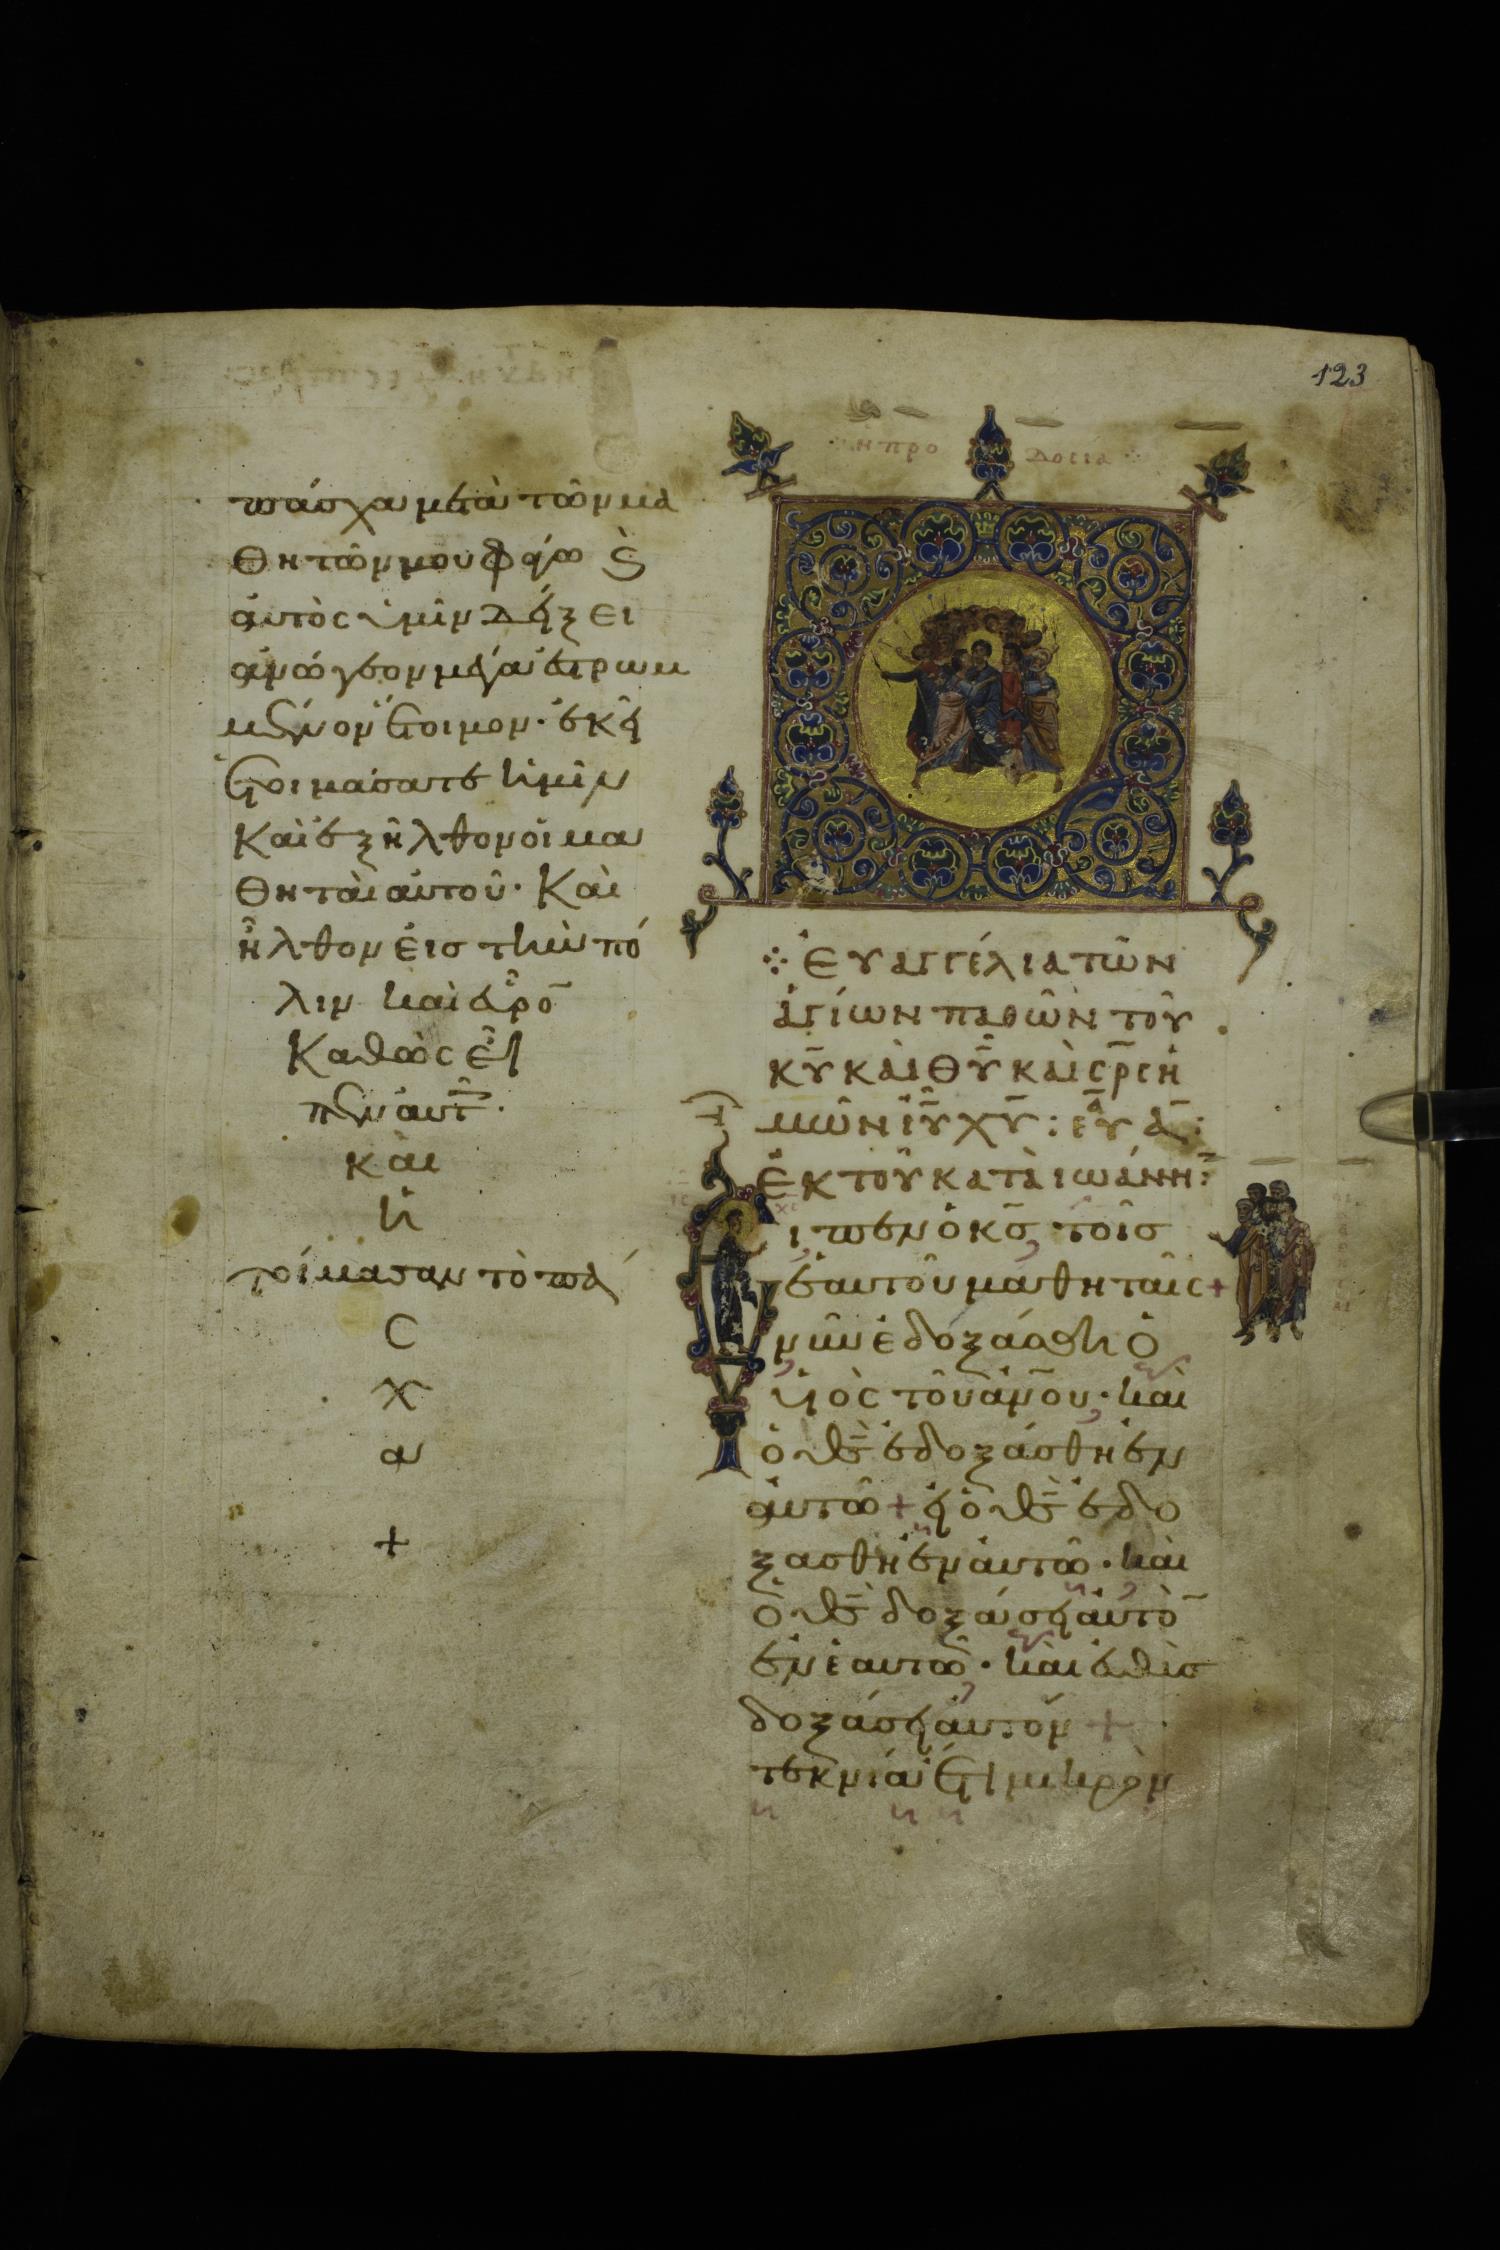 123
ἡ προδοσία
πάσχα μετὰ τῶν μα
θητῶν μου φάγω καὶ
αὐτὸς ὑμῖν δείξει
ἀνώγεον μέγα ἐστρωμ
μένον ἕτοιμον· ἐκεῖ
ἑτοιμάσατε ἡμῖν
Καὶ ἐξῆλθον οἱ μα
θηταὶ αὐτοῦ· Καὶ
ἦλθον εἰς τὴν πό
λιν καὶ εὗρο̅
Καθὼς εἶ
πεν αὐτ
καὶ
ἡ
τοίμασαν τὸ πά
σ
χ
α
+
Εὐαγγέλια τῶν
ἁγίων παθῶν τοῦ
κ̅υ̅ καὶ θ̅υ̅ καὶ σ̅ρ̅ς ἡ
μῶν ι̅υ̅ χ̅υ̅: εὐα α̅:
Ἐκ τοῦ κατὰ ἰωάννη:
ιπεν ὁ κ̅ς̅ τοῖς
ἑαυτοῦ μαθηταῖς+
νῦν ἐδοξάσθη ὁ
υἱὸς τοῦ ἀν̅ου· καὶ
ὁ θ̅ς̅ ἐδοξάσθη ἐν
αὐτῶ+ εἰ ὁ θ̅ς̅ ἐδο
ξάσθη ἐν αὐτῶ· καὶ
ὁ θ̅ς̅ δοξάσει αὐτὸ̅
ἐν ἑαυτῶ· καὶ εὐθὺς
δοξάσει αὐτόν+
τεκνία ἔτι μικρὸν